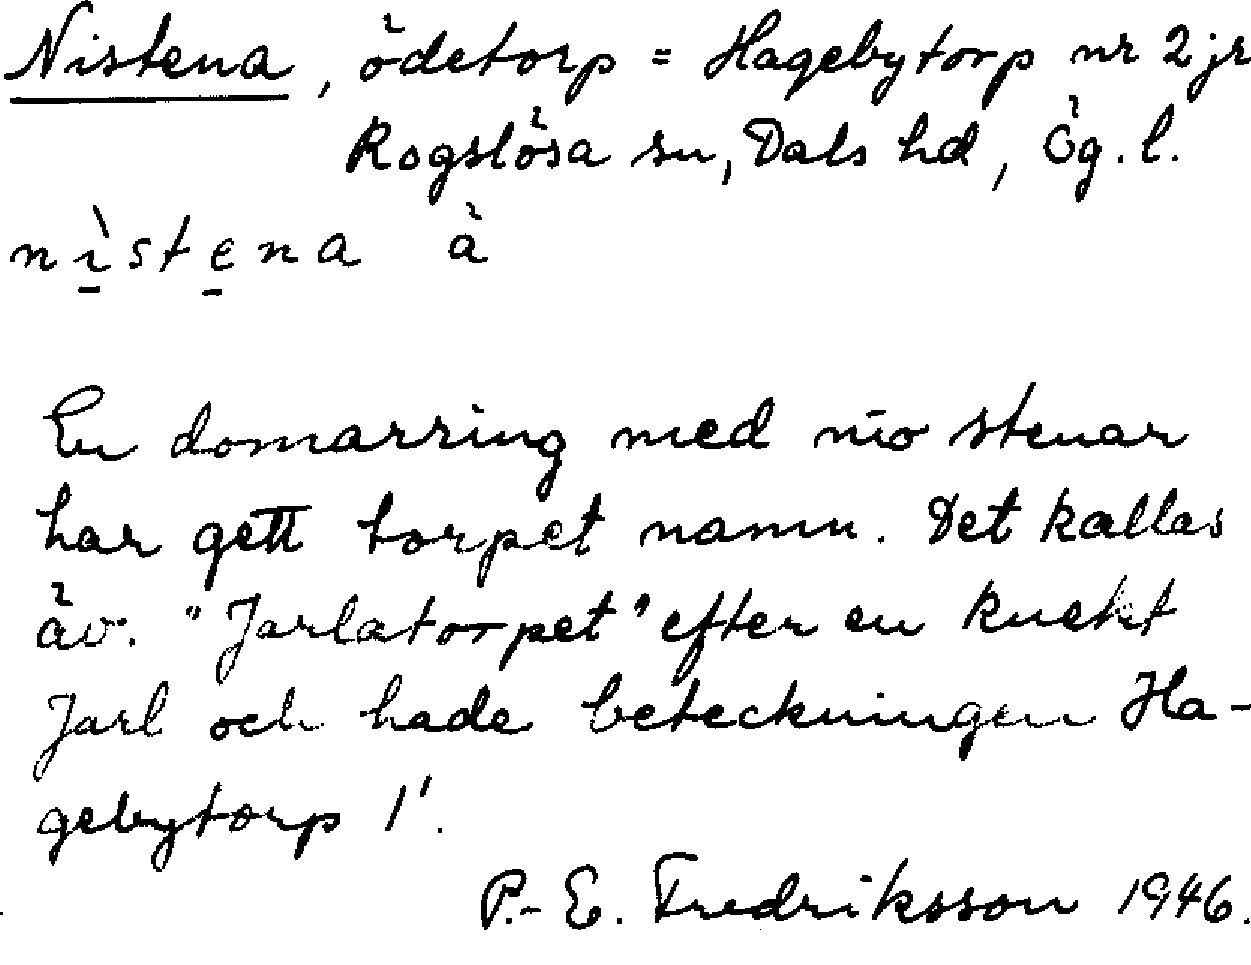 Nistena, ödetorp = Hagebytorp nr 2 jr
Rogslösa sn, Dals hd, Ög. l.
nìstena å
En domarring med nio stenar
har gett torpet namn. Det kallas
äv. "Jarlatorpet" efter en knekt
Jarl och hade beteckningen Ha-
gebytorp 1'.
P.-E. Fredriksson 1946.